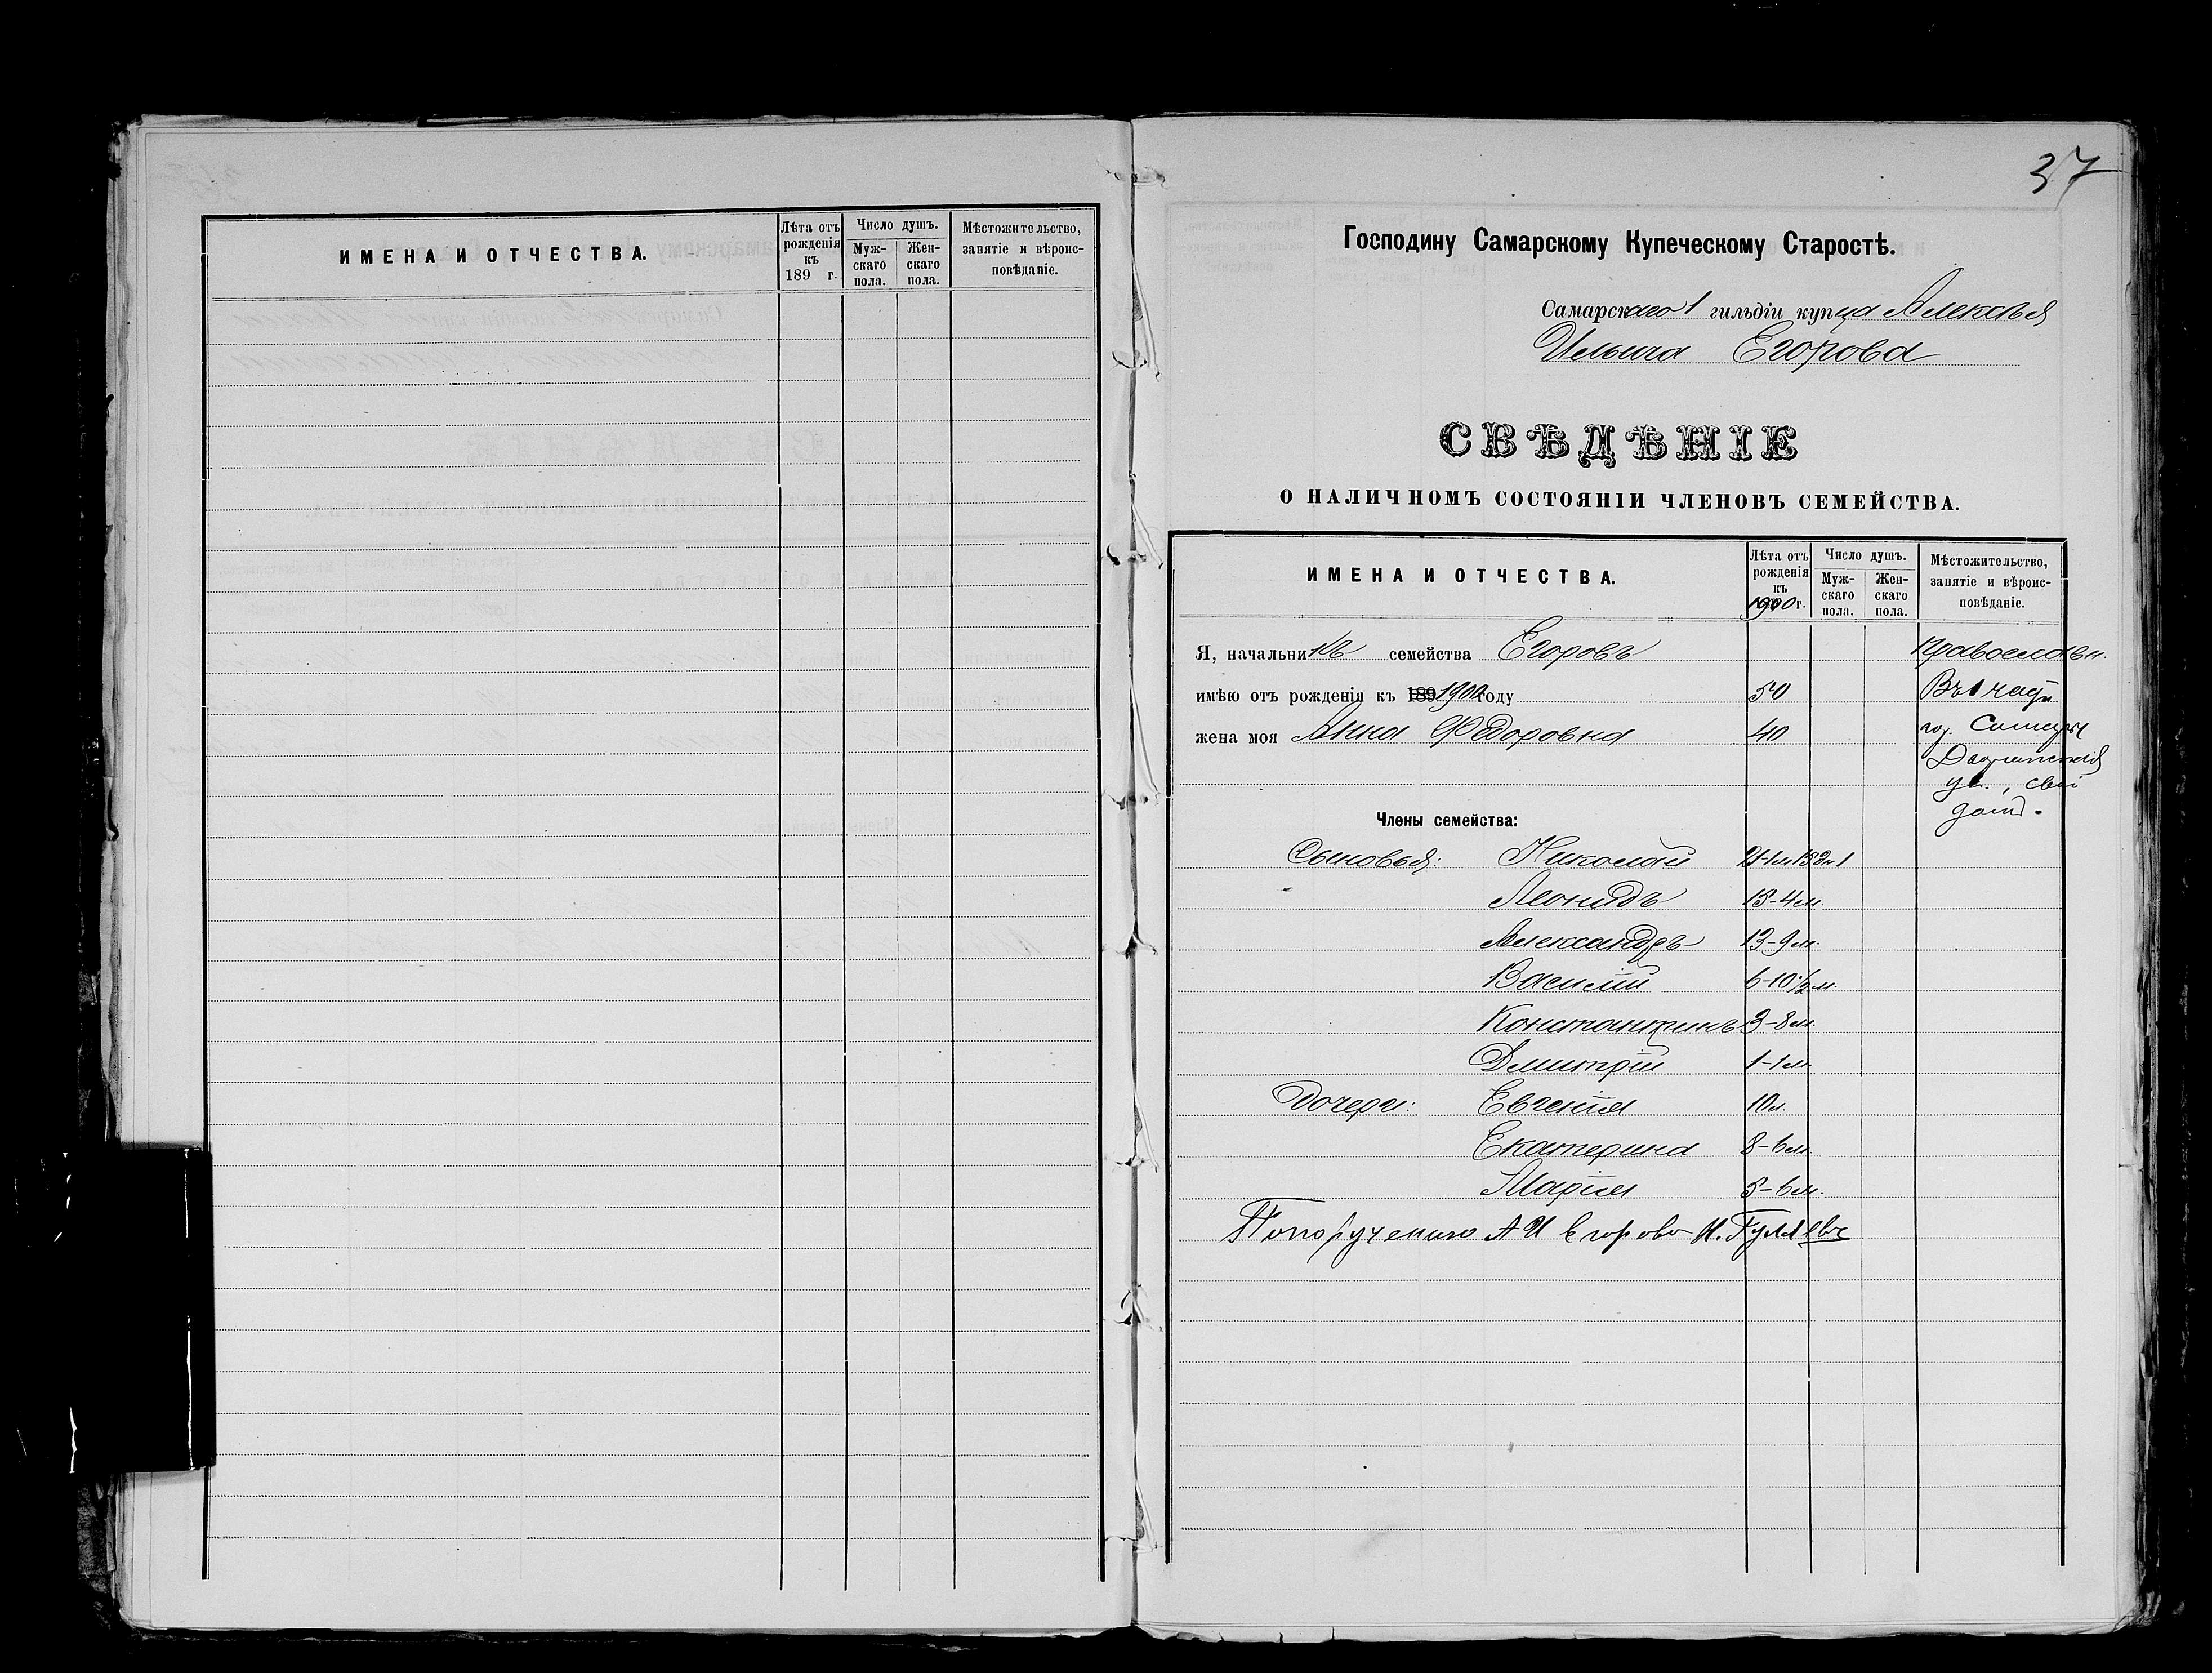 ИМЕНА И ОТЧЕСТВА.
Лѣта отъ рожденія къ 189 г.
Число душъ.
Мужскаго пола.
Женскаго пола.
Мѣстожительство, занятіе и вѣроисповѣданіе.
37
Господину Самарскому Купеческому Старостѣ.
Самарскаго 1 гильдіи купца Алексѣя
Ильича Егорова
СВѢДѢНІЕ
О НАЛИЧНОМЪ СОСТОЯНІИ ЧЛЕНОВЪ СЕМЕЙСТВА.
ИМЕНА И ОТЧЕСТВА.
Лѣта отъ рожденія къ 1900 г.
Число душъ.
Мужскаго пола.
Женскаго пола.
Мѣстожительство, занятіе и вѣроисповѣданіе.
Я, начальникъ семейства Егоровъ Православн.
имѣю отъ рожденія къ 189 1900 году 50 Въ 1 части
жена моя Анна Ѳедоровна 40 гор. Самары
Дворянская
ул., свой
домъ.
Члены семейства:
Сыновья: Николай 21-1м 15дн
Леонидъ 15-4м.
Александръ 13-9м.
Василій 6-10½м.
Константинъ 3-8м.
Дмитрій 1-1м.
Дочери: Евгенія 10л.
Екатерина 8-6м.
Марія 5-6м.
По порученію А И Егорова И. Гуляевъ